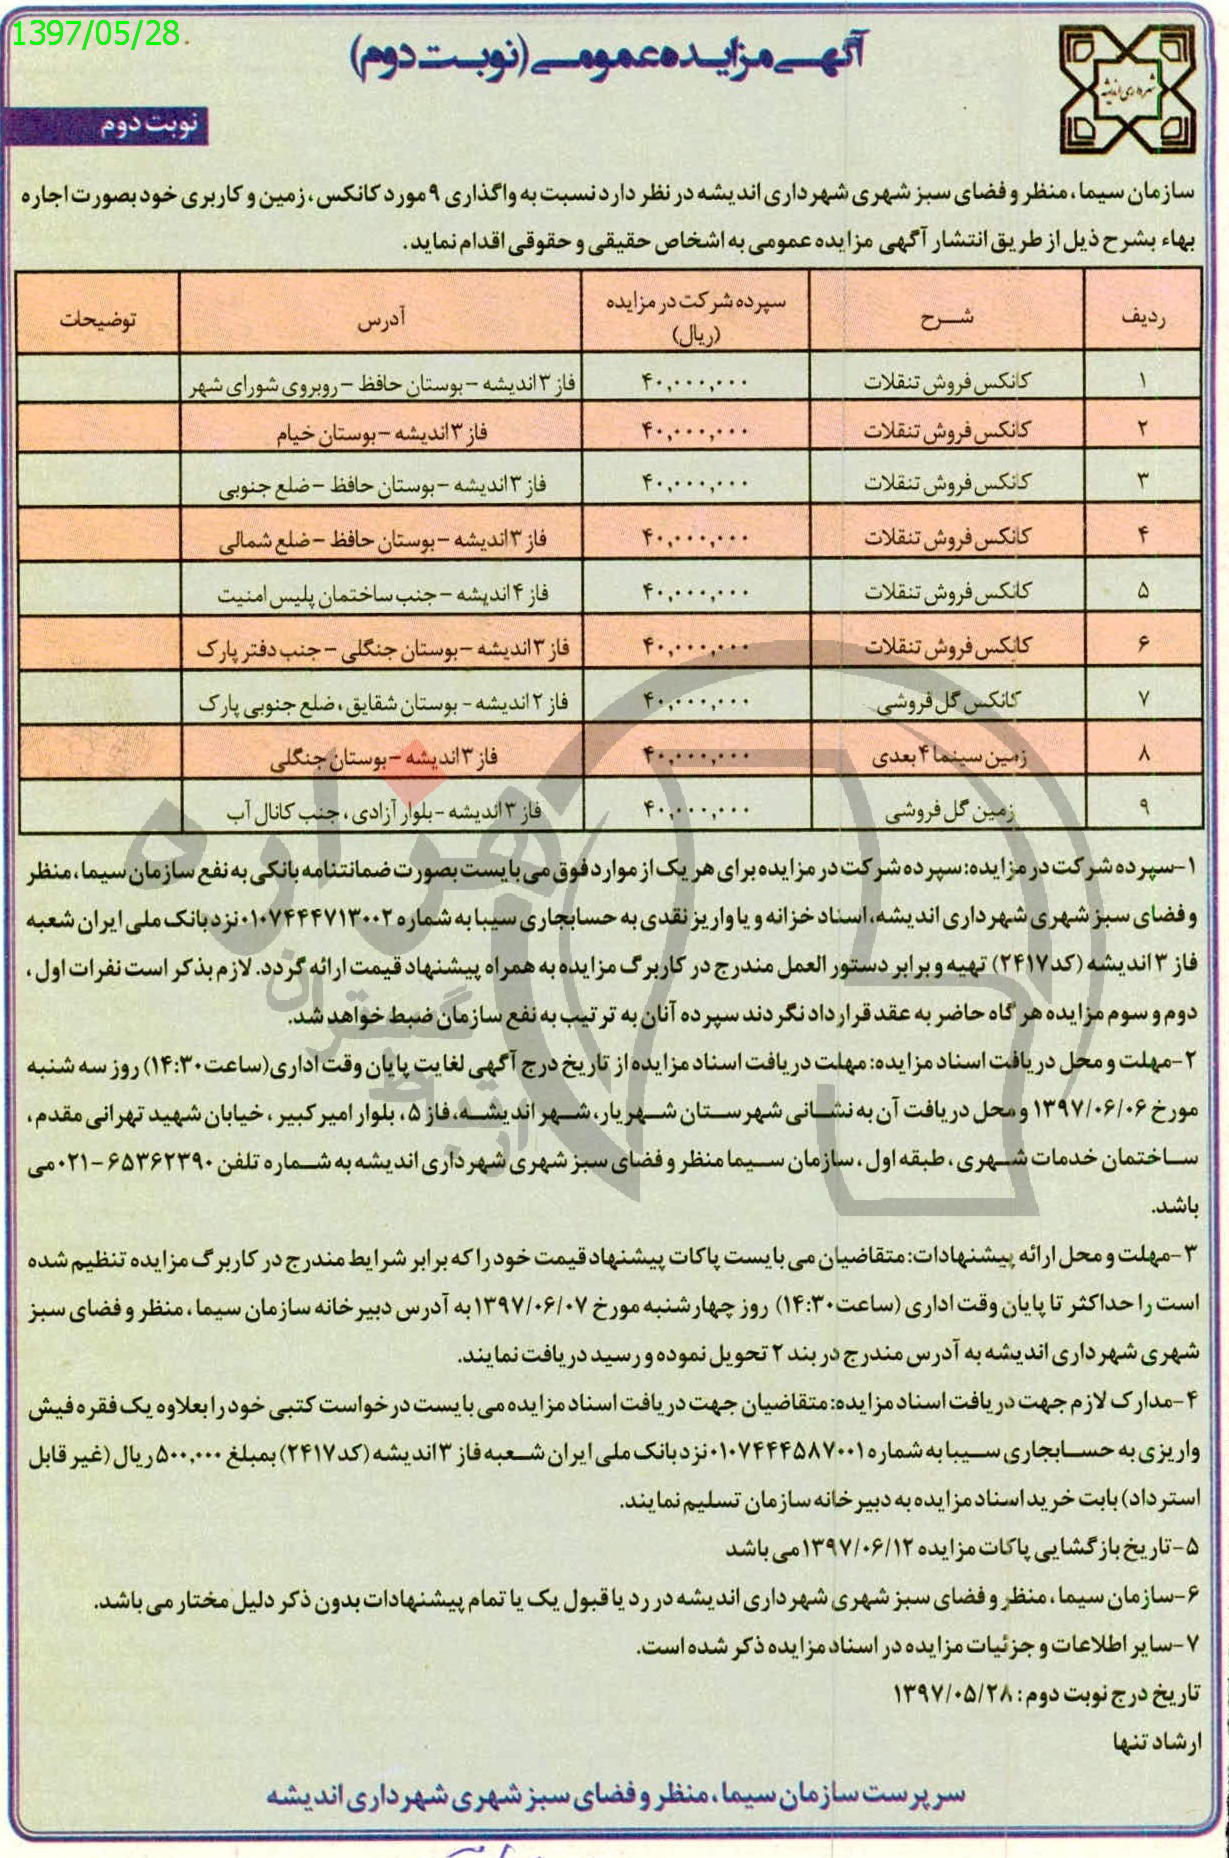 1397/05/28
آگهی مزایده عمومی (نوبت دوم)
شهرداری اندیشه
نوبت دوم
سازمان سیما، منظر و فضای سبز شهری شهرداری اندیشه در نظر دارد نسبت به واگذاری ۹ مورد کانکس، زمین و کاربری خود بصورت اجاره
بهاء بشرح ذیل از طریق انتشار آگهی مزایده عمومی به اشخاص حقیقی و حقوقی اقدام نماید.
ردیف شرح سپرده شرکت در مزایده (ریال) آدرس توضیحات
۱ کانکس فروش تنقلات ۴۰,۰۰۰,۰۰۰ فاز ۳ اندیشه – بوستان حافظ – روبروی شورای شهر
۲ کانکس فروش تنقلات ۴۰,۰۰۰,۰۰۰ فاز ۳ اندیشه – بوستان خیام
۳ کانکس فروش تنقلات ۴۰,۰۰۰,۰۰۰ فاز ۳ اندیشه – بوستان حافظ – ضلع جنوبی
۴ کانکس فروش تنقلات ۴۰,۰۰۰,۰۰۰ فاز ۳ اندیشه – بوستان حافظ – ضلع شمالی
۵ کانکس فروش تنقلات ۴۰,۰۰۰,۰۰۰ فاز ۴ اندیشه – جنب ساختمان پلیس امنیت
۶ کانکس فروش تنقلات ۴۰,۰۰۰,۰۰۰ فاز ۳ اندیشه – بوستان جنگلی – جنب دفتر پارک
۷ کانکس گل فروشی ۴۰,۰۰۰,۰۰۰ فاز ۲ اندیشه - بوستان شقایق، ضلع جنوبی پارک
۸ زمین سینما ۴ بعدی ۴۰,۰۰۰,۰۰۰ فاز ۳ اندیشه – بوستان جنگلی
۹ زمین گل فروشی ۴۰,۰۰۰,۰۰۰ فاز ۳ اندیشه – بلوار آزادی، جنب کانال آب
۱-سپرده شرکت در مزایده: سپرده شرکت در مزایده برای هر یک از موارد فوق می بایست بصورت ضمانتنامه بانکی به نفع سازمان سیما، منظر
و فضای سبز شهری شهرداری اندیشه، اسناد خزانه و یا واریز نقدی به حسابجاری سیبا به شماره ۰۱۰۷۴۴۴۷۱۳۰۰۲ نزد بانک ملی ایران شعبه
فاز ۳ اندیشه (کد ۲۴۱۷) تهیه و برابر دستور العمل مندرج در کاربرگ مزایده به همراه پیشنهاد قیمت ارائه گردد. لازم بذکر است نفرات اول،
دوم و سوم مزایده هر گاه حاضر به عقد قرارداد نگردند سپرده آنان به ترتیب به نفع سازمان ضبط خواهد شد.
۲-مهلت و محل دریافت اسناد مزایده: مهلت دریافت اسناد مزایده از تاریخ درج آگهی لغایت پایان وقت اداری (ساعت ۱۴:۳۰) روز سه شنبه
مورخ ۱۳۹۷/۰۶/۰۶ و محل دریافت آن به نشانی شهرستان شهریار، شهر اندیشه، فاز ۵، بلوار امیر کبیر، خیابان شهید تهرانی مقدم،
ساختمان خدمات شهری، طبقه اول، سازمان سیما منظر و فضای سبز شهری شهرداری اندیشه به شماره تلفن ۶۵۳۶۲۳۹۰-۰۲۱ می
باشد.
۳-مهلت و محل ارائه پیشنهادات: متقاضیان می بایست پاکات پیشنهاد قیمت خود را که برابر شرایط مندرج در کاربرگ مزایده تنظیم شده
است را حداکثر تا پایان وقت اداری (ساعت ۱۴:۳۰) روز چهارشنبه مورخ ۱۳۹۷/۰۶/۰۷ به آدرس دبیرخانه سازمان سیما، منظر و فضای سبز
شهری شهرداری اندیشه به آدرس مندرج در بند ۲ تحویل نموده و رسید دریافت نمایند.
۴-مدارک لازم جهت دریافت اسناد مزایده: متقاضیان جهت دریافت اسناد مزایده می بایست درخواست کتبی خود را بعلاوه یک فقره فیش
واریزی به حسابجاری سیبا به شماره ۰۱۰۷۴۴۴۵۸۷۰۰۱ نزد بانک ملی ایران شعبه فاز ۳ اندیشه (کد ۲۴۱۷) بمبلغ ۵۰۰,۰۰۰ ریال (غیر قابل
استرداد) بابت خرید اسناد مزایده به دبیرخانه سازمان تسلیم نمایند.
۵-تاریخ بازگشایی پاکات مزایده ۱۳۹۷/۰۶/۱۲ می باشد
۶-سازمان سیما، منظر و فضای سبز شهری شهرداری اندیشه در رد یا قبول یک یا تمام پیشنهادات بدون ذکر دلیل مختار می باشد.
۷-سایر اطلاعات و جزئیات مزایده در اسناد مزایده ذکر شده است.
تاریخ درج نوبت دوم: ۱۳۹۷/۰۵/۲۸
ارشاد تنها
سرپرست سازمان سیما، منظر و فضای سبز شهری شهرداری اندیشه